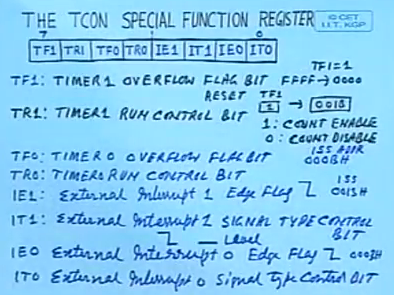 THE TCON SPECIAL FUNCTION REGISTER
© CET
I.I.T. KGP
7 0
TF1 TR1 TF0 TR0 IE1 IT1 IE0 IT0
TF1=1
TF1: TIMER1 OVERFLOW FLAG BIT FFFF → 0000
RESET TF1
1 → 001B
TR1: TIMER1 RUN CONTROL BIT
1: COUNT ENABLE
0: COUNT DISABLE
ISS ADDR
TF0: TIMER 0 OVERFLOW FLAG BIT 000BH
TR0: TIMER0 RUN CONTROL BIT
ISS
IE1: External Interrupt 1 Edge Flag 0013H
IT1: External Interrupt 1 SIGNAL TYPE CONTROL
BIT
Level
IE0 External Interrupt 0 Edge Flag 0003H
IT0 External Interrupt 0 Signal Type Control BIT